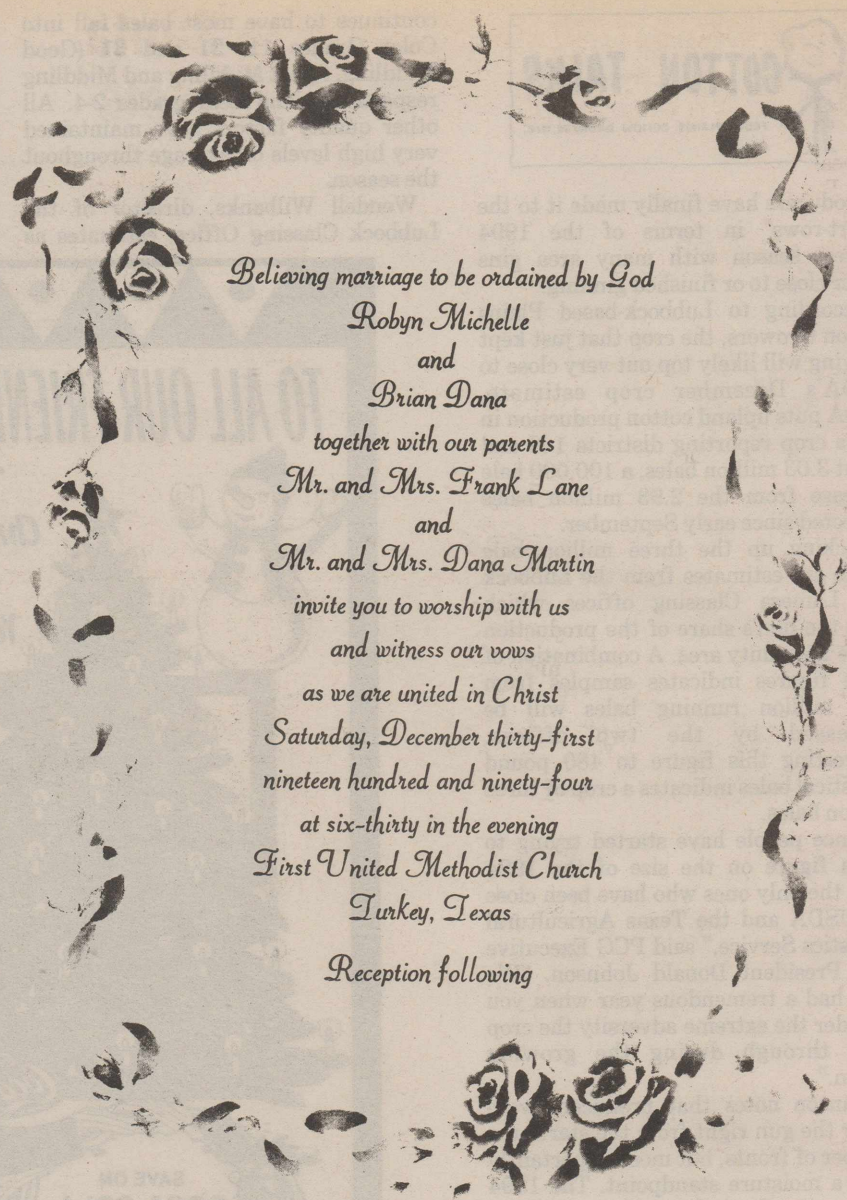 Believing marriage to be ordained by God
Robyn Michelle
and
Brian Dana
together with our parents
Mr. and Mrs. Frank Lane
and
Mr. and Mrs. Dana Martin
invite you to worship with us
and witness our vows
as we are united in Christ
Saturday, December thirty-first
nineteen hundred and ninety-four
at six-thirty in the evening
First United Methodist Church
Turkey, Texas
Reception following